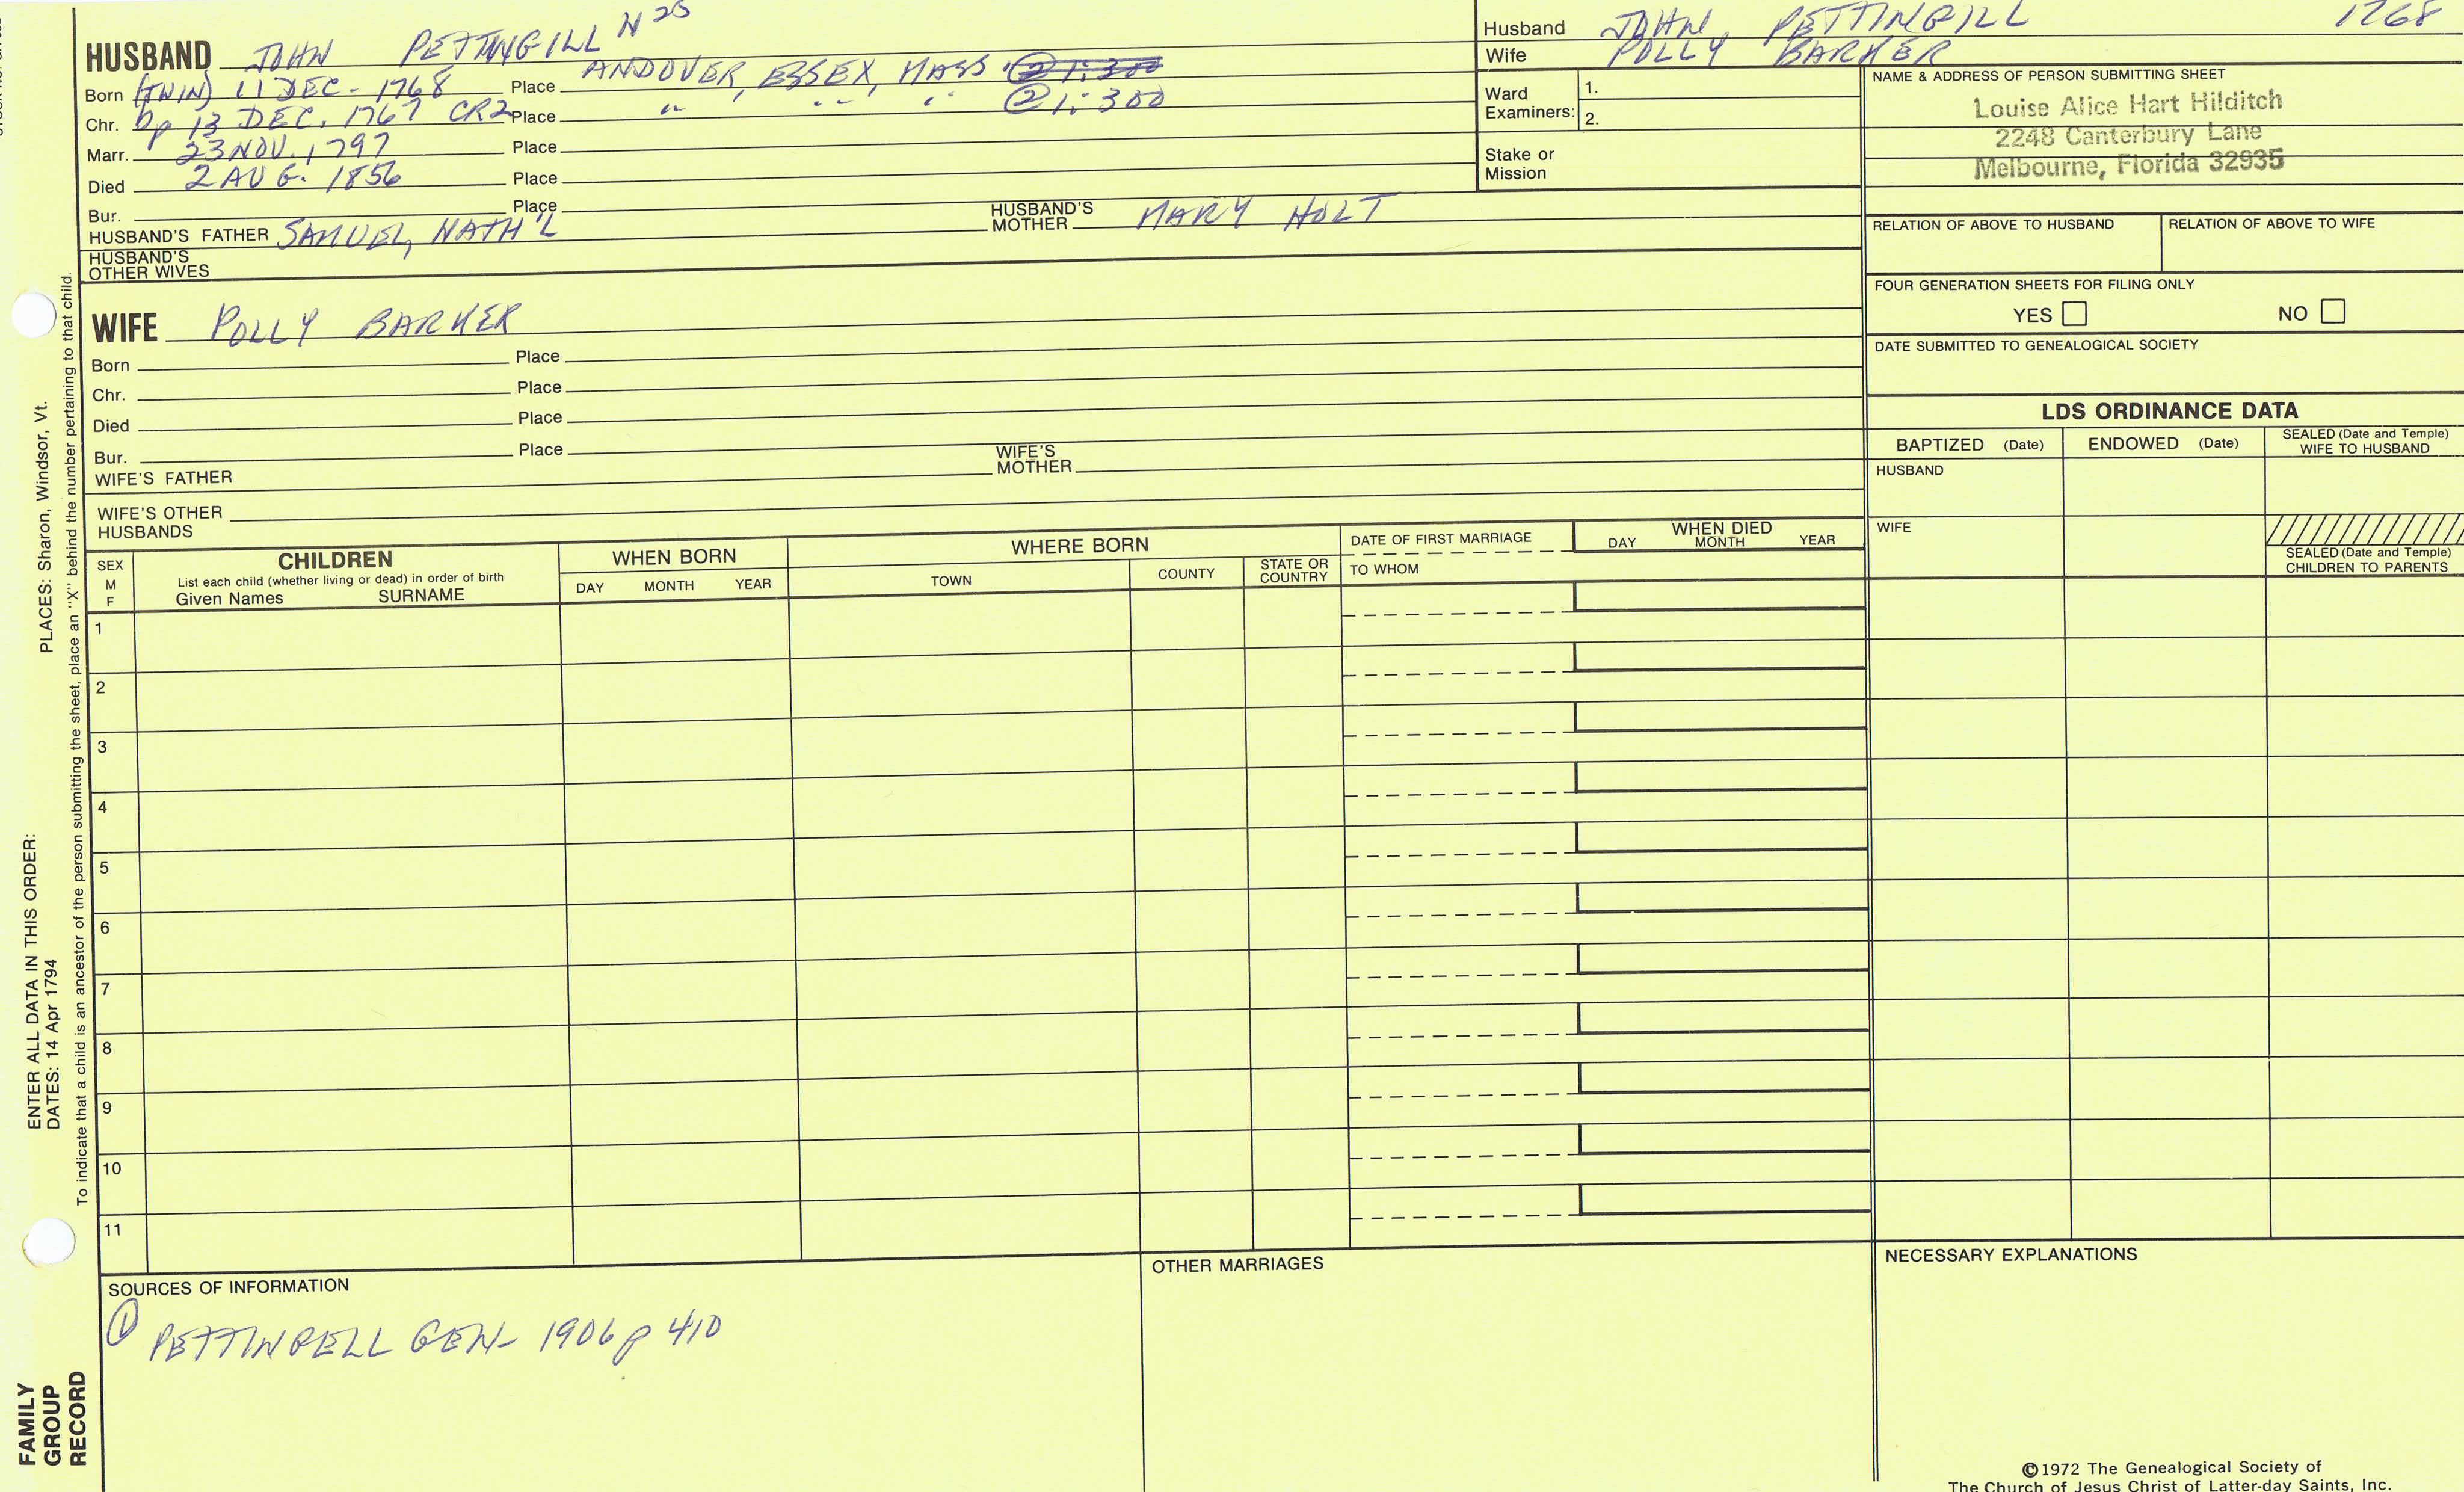 HUSBAND JOHN PETTINGILL N25
Born (TWIN) 11 DEC. 1768 Place ANDOVER, ESSEX, MASS. ② 1:300
Chr. bp 13 DEC. 1767 CR2 Place " , " " " ② 1:300
Marr. 23 NOV. 1797 Place
Died 2 AUG. 1856 Place
Bur. Place
HUSBAND'S FATHER SAMUEL, NATH'L HUSBAND'S MOTHER MARY HOLT
HUSBAND'S
OTHER WIVES
Husband JOHN PETTINGILL 1768
Wife POLLY BARKER
Ward
Examiners:
1.
2.
Stake or
Mission
NAME & ADDRESS OF PERSON SUBMITTING SHEET
Louise Alice Hart Hilditch
2248 Canterbury Lane
Melbourne, Florida 32935
RELATION OF ABOVE TO HUSBAND RELATION OF ABOVE TO WIFE
FOUR GENERATION SHEETS FOR FILING ONLY
YES NO
DATE SUBMITTED TO GENEALOGICAL SOCIETY
WIFE POLLY BARKER
Born Place
Chr. Place
Died Place
Bur. Place
WIFE'S FATHER WIFE'S MOTHER
WIFE'S OTHER
HUSBANDS
LDS ORDINANCE DATA
BAPTIZED (Date) ENDOWED (Date) SEALED (Date and Temple) WIFE TO HUSBAND
HUSBAND
WIFE
SEALED (Date and Temple)
CHILDREN TO PARENTS
SEX
M
F
CHILDREN
List each child (whether living or dead) in order of birth
Given Names SURNAME
WHEN BORN
DAY MONTH YEAR
WHERE BORN
TOWN COUNTY STATE OR COUNTRY
DATE OF FIRST MARRIAGE
TO WHOM
WHEN DIED
DAY MONTH YEAR
1
2
3
4
5
6
7
8
9
10
11
SOURCES OF INFORMATION
① PETTINGELL GEN- 1906 p 410
OTHER MARRIAGES
NECESSARY EXPLANATIONS
©1972 The Genealogical Society of
The Church of Jesus Christ of Latter-day Saints, Inc.
FAMILY
GROUP
RECORD
ENTER ALL DATA IN THIS ORDER:
DATES: 14 Apr 1794 PLACES: Sharon, Windsor, Vt.
To indicate that a child is an ancestor of the person submitting the sheet, place an "X" behind the number pertaining to that child.